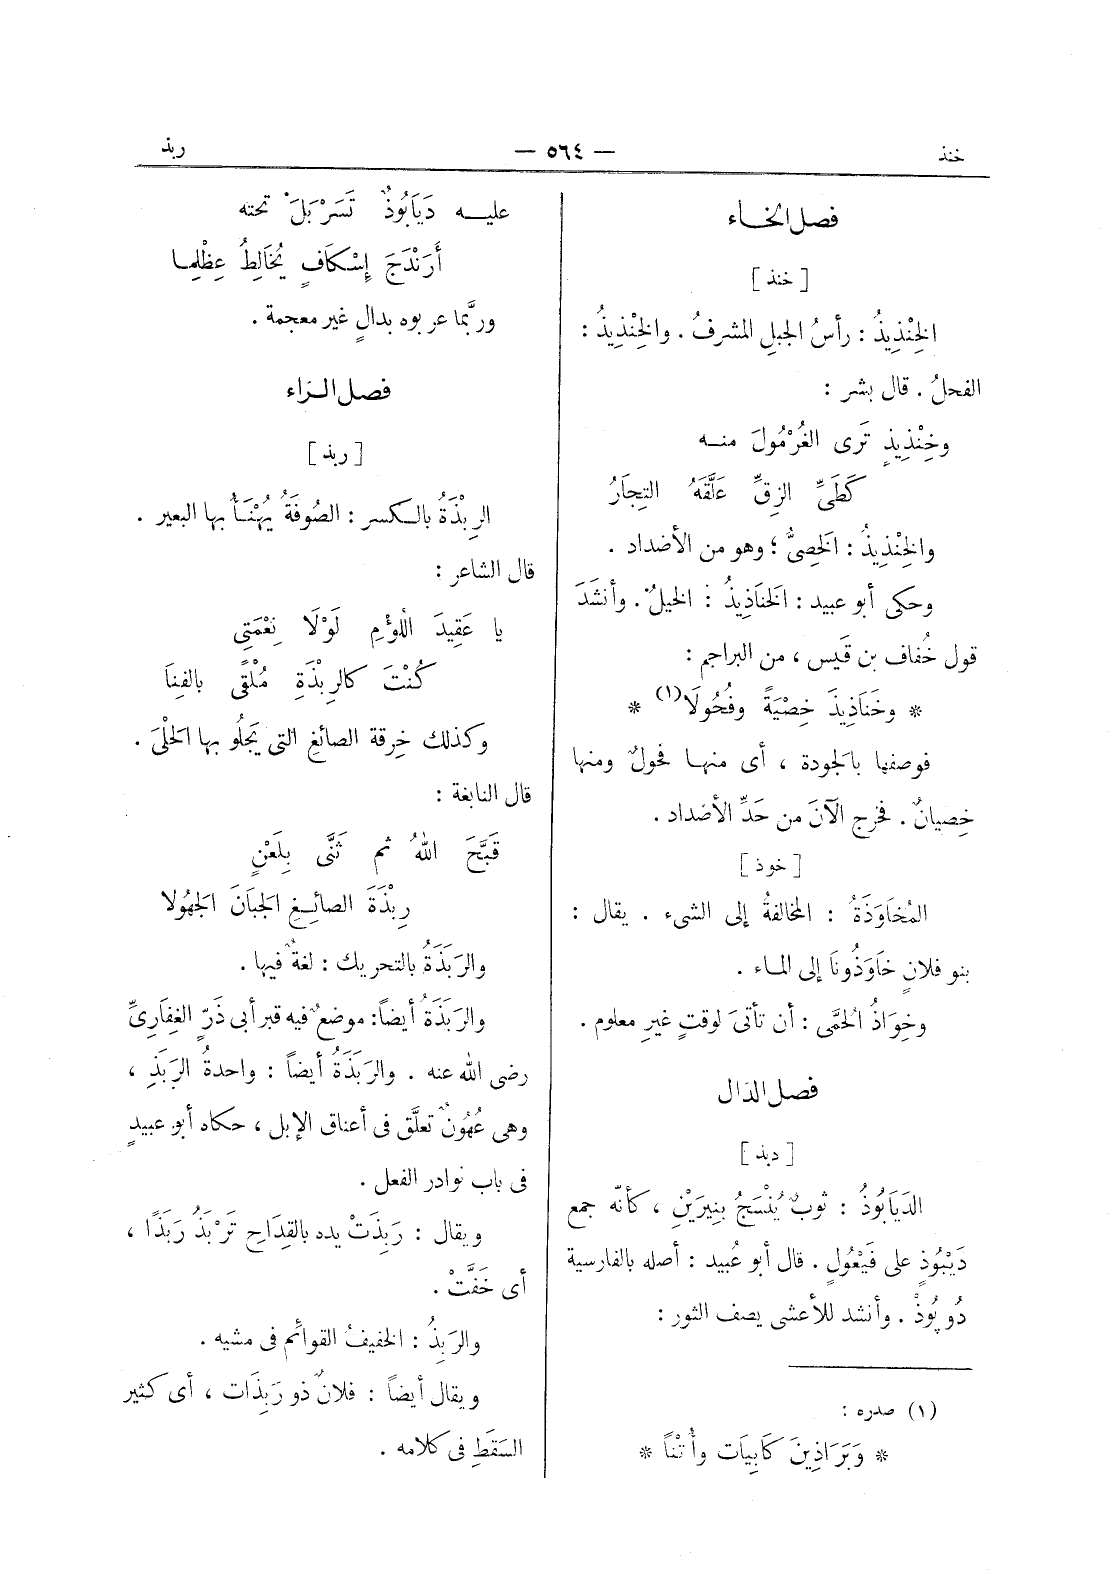 خنذ — ٥٦٤ — ربذ
فصل الخاء
[ خنذ ]
الخِنْذِيذُ : رأسُ الجبلِ المشرفُ . والخِنْذِيذُ :
الفحلُ . قال بشر :
وخِنْذِيذٍ تَرى الغُرْمُولَ منه
كَطَىِّ الزِقِّ عَلَّقَهُ التِجَارُ
والخِنْذِيذُ : الخَصِىُّ ؛ وهو من الأضداد .
وحكى أبو عبيد : الخَنَاذِيذُ : الخيلُ . وأنشَدَ
قول خُفاف بن قَيس ، من البراجم :
* وخَنَاذِيذَ خِصْيَةً وفُحُولَا(١) *
فوصفها بالجودة ، أى منها فحولٌ ومنها
خِصيانٌ . فخرج الآنَ من حَدِّ الأضداد .
[ خوذ ]
المُخَاوَذَةُ : المخالفةُ إلى الشىء . يقال :
بنو فلانٍ خَاوَذُونَا إلى الماء .
وخِوَاذُ الحُمَّى : أن تأتىَ لوقتٍ غيرِ معلوم .
فصل الدال
[ دبذ ]
الدَيَابُوذُ : ثوبٌ يُنْسَجُ بِنِيرَيْنِ ، كأنّه جمع
دَيْبُوذٍ على فَيْعُولٍ . قال أبو عُبيد : أصله بالفارسية
دُو پُوذْ . وأنشد للأعشى يصف الثور :
(١) صدره :
* وَبَرَاذِينَ كَابِيَات وأُتْنَاً *
عليه دَيَابُوذٌ تَسَرْبَلَ تحته
أَرَنْدَجَ إِسْكَافٍ يُخَالِطُ عِظْلِمَا
وربَّما عربوه بدالٍ غير معجمة .
فصل الراء
[ ربذ ]
الرِبْذَةُ بالكسر : الصُوفَةُ يُهْنَأُ بها البعير .
قال الشاعر :
يا عَقِيدَ اللُؤْمِ لَوْلَا نِعْمَتِى
كُنْتَ كالرِبْذَةِ مُلْقًى بالفِنَا
وكذلك خِرقة الصائغِ التى يَجلُو بها الحَلْىَ .
قال النابغة :
قَبَّحَ اللهُ ثم ثَنَّى بِلَعْنٍ
رِبْذَةَ الصائِغِ الجَبَانَ الجَهُولا
والرَبَذَةُ بالتحريك : لغةٌ فيها .
والرَبَذَةُ أيضاً : موضعٌ فيه قبر أبى ذَرٍّ الغِفَارِىِّ
رضى الله عنه . والرَبَذَةُ أيضاً : واحدةُ الرَبَذِ ،
وهى عُهُونٌ تعلَّق فى أعناق الإبل ، حكاه أبو عبيدٍ
فى باب نوادر الفعل .
ويقال : رَبِذَتْ يده بالقِدَاحِ تَرْبَذُ رَبَذًا ،
أى خَفَّتْ .
والرَبِذُ : الخفيفُ القوائم فى مشيه .
ويقال أيضاً : فلانٌ ذو رَبِذَات ، أى كثير
السَقَطِ فى كلامه .